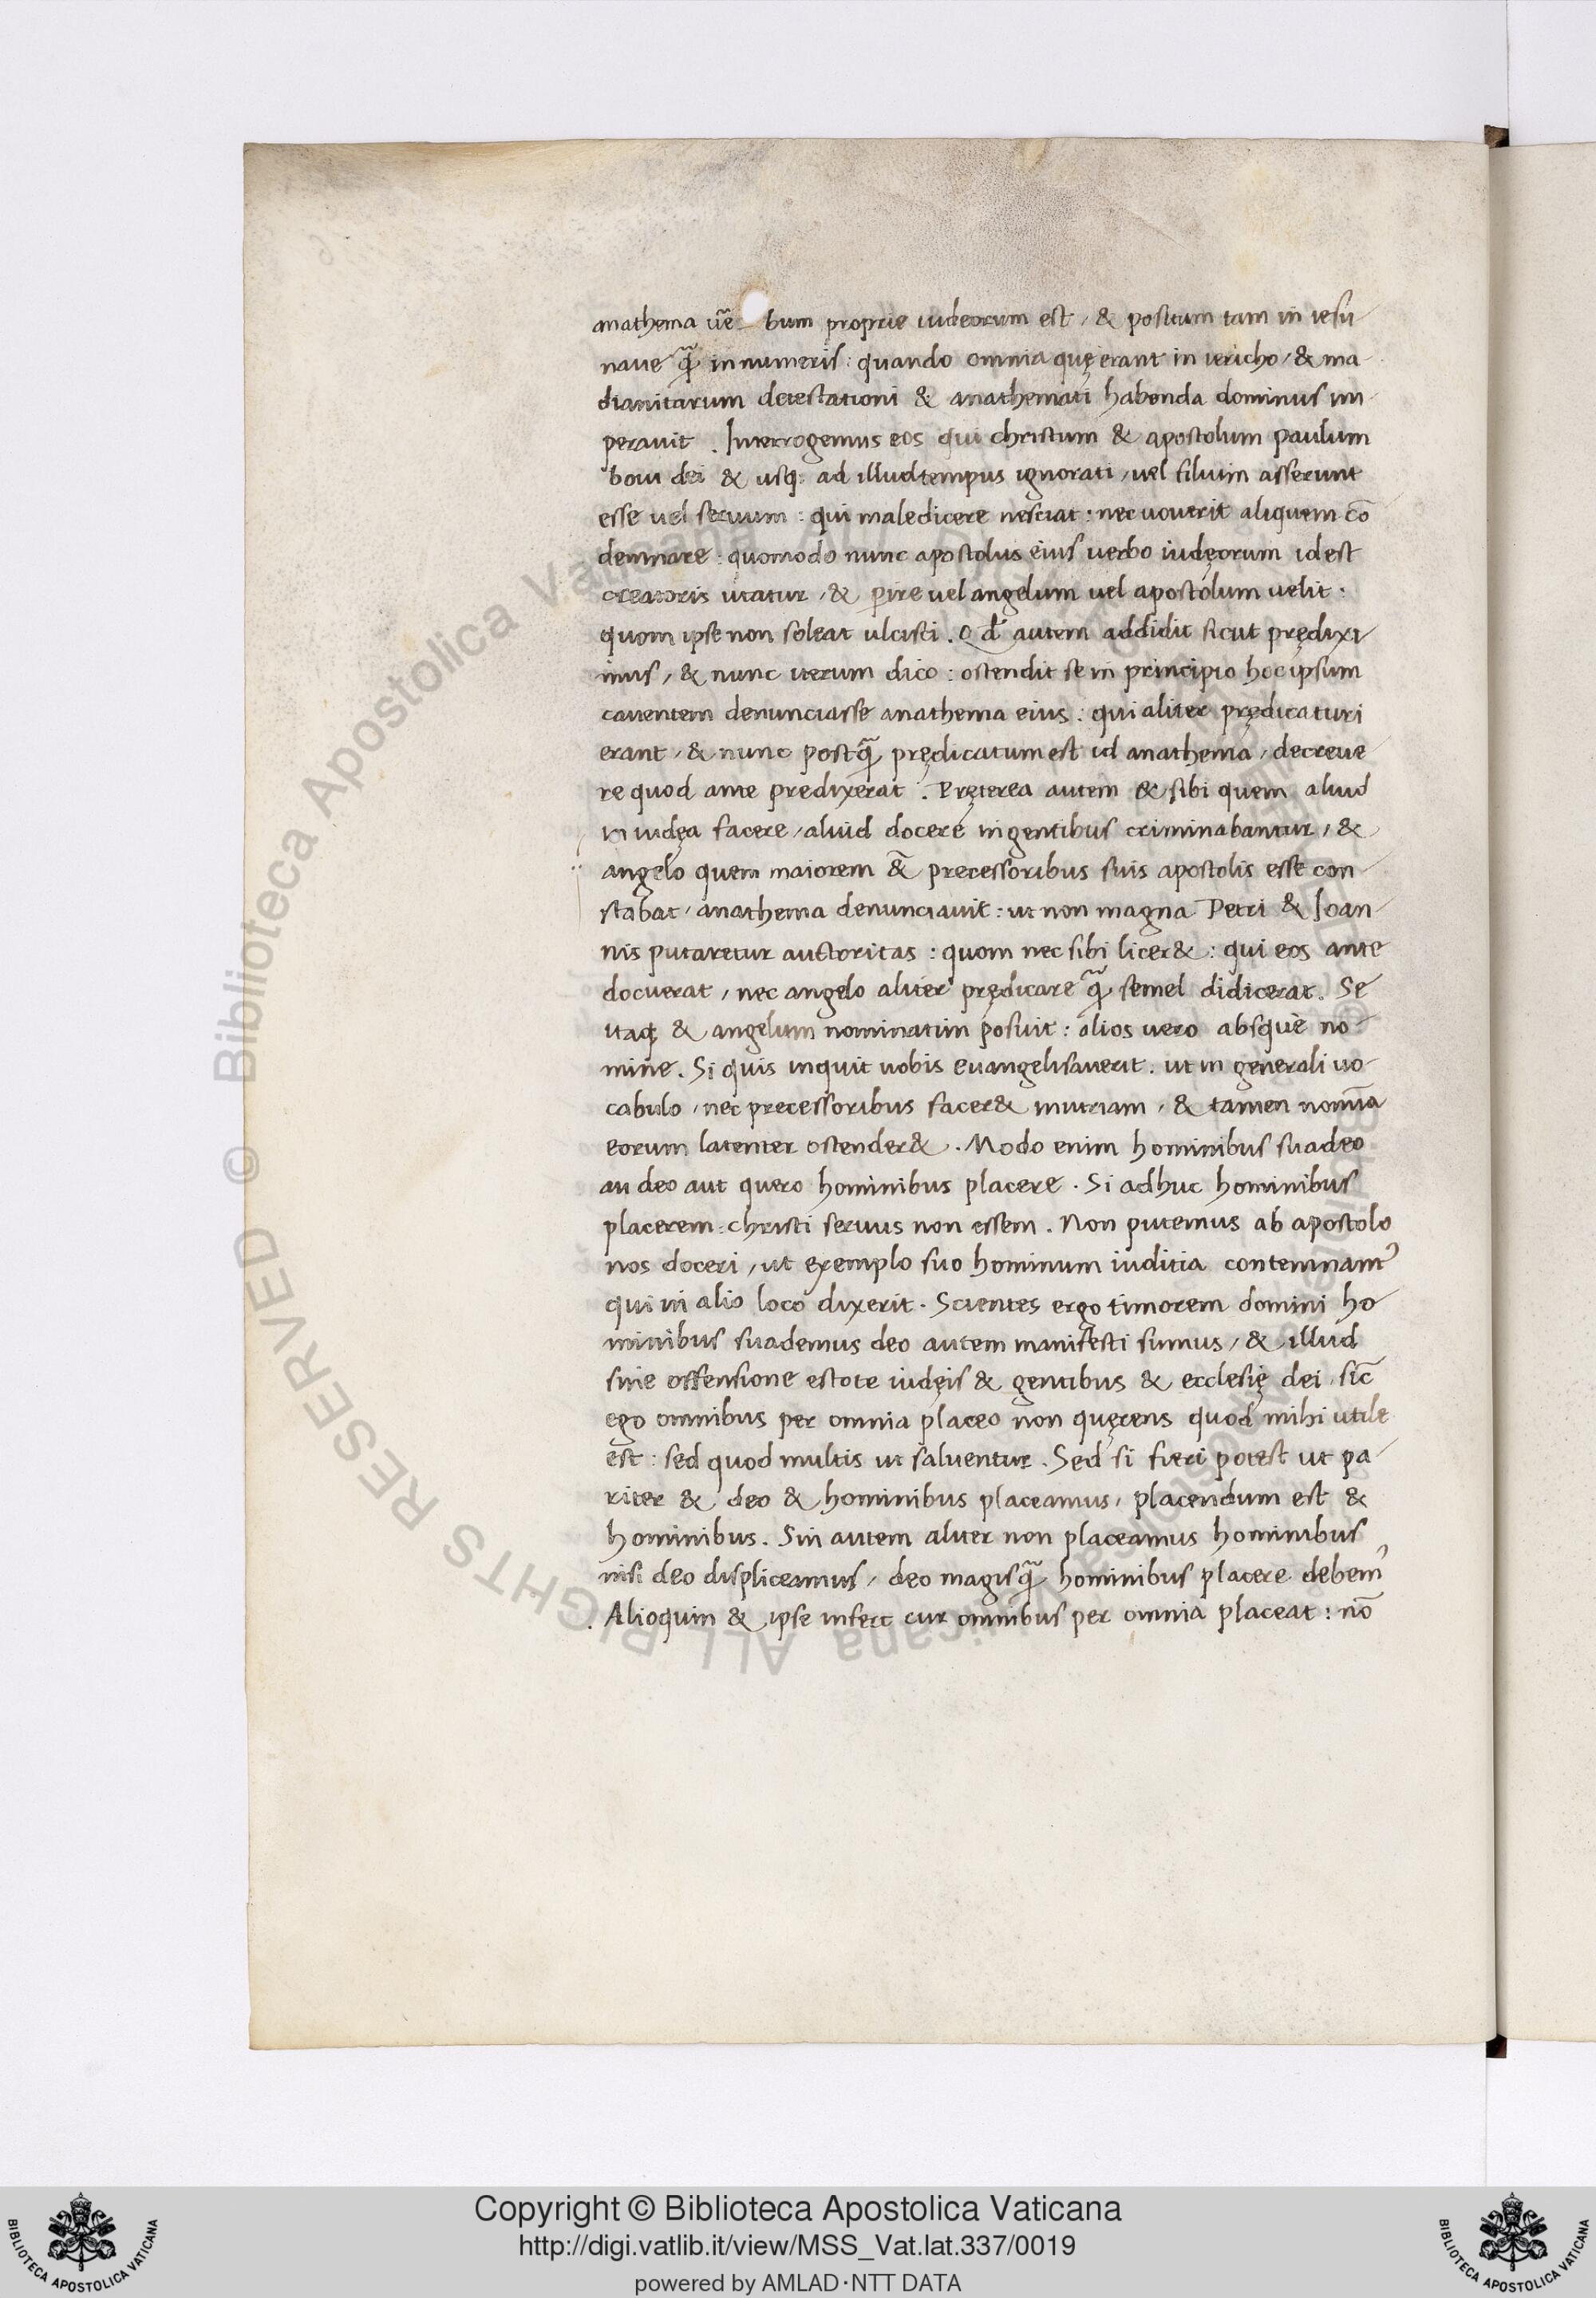 anathema u̅e bum proprie iudeorum est, & positum tam in iesu
naue qua̅ in numeris: quando omnia quę erant in iericho, & ma
dianitarum detestationi & anathemati habenda dominus im
perauit. Interrogemus eos qui christum & apostolum paulum
boni dei & usq; ad illud tempus ignorati, uel filium asserunt
esse uel seruum: qui maledicere nesciat: nec nouerit aliquem co̅
demnare: quomodo nunc apostolus eius uerbo iudęorum id est
creatoris utatur, & ꝑire uel angelum uel apostolum uelit:
quom ipse non soleat ulcisci. Qd̕ autem addidit sicut prędixi
mus, & nunc iterum dico: ostendit se in principio hoc ipsum
cauentem denunciasse anathema eius: qui aliter prędicaturi
erant, & nunc postqua̅ prędicatum est id anathema, decreue
re quod ante predixerat. Pręterea autem & sibi quem aliud
in iudęa facere, aliud docere in gentibus criminabantur, &
angelo quem maiorem &̅ precessoribus suis apostolis esse con
stabat, anathema denunciauit: ut non magna Petri & Ioan
nis putaretur auctoritas: quom nec sibi licer&: qui eos ante
docuerat, nec angelo aliter prędicare qua̅ semel didicerat. Se
itaq; & angelum nominatim posuit: alios uero absque no
mine. Si quis inquit uobis euangelisauerit. ut in generali uo
cabulo, nec precessoribus facer& iniuriam, & tamen nomi̅a
eorum latenter ostender&. Modo enim hominibus suadeo
an deo aut quero hominibus placere. Si adhuc hominibus
placerem: christi seruus non essem. Non putemus ab apostolo
nos doceri, ut exemplo suo hominum iuditia contemnamꝰ
qui in alio loco dixerit. Scientes ergo timorem domini ho
minibus suademus deo autem manifesti sumus, & illud
sine offensione estote iudęis & gentibus & ecclesię dei, sic̅
ego omnibus per omnia placeo non quęrens quod mihi utile
est: sed quod multis ut saluentur. Sed si fieri potest ut pa
riter & deo & hominibus placeamus, placendum est &
hominibus. Sin autem aliter non placeamus hominibus
nisi deo displiceamus, deo magis qua̅ hominibus placere debemꝰ
. Alioquin & ipse infert cur omnibus per omnia placeat: no̅
© Biblioteca Apostolica Vaticana ALL RIGHTS RESERVED
Copyright © Biblioteca Apostolica Vaticana
http://digi.vatlib.it/view/MSS_Vat.lat.337/0019
powered by AMLAD·NTT DATA
BIBLIOTECA APOSTOLICA VATICANA
BIBLIOTECA APOSTOLICA VATICANA